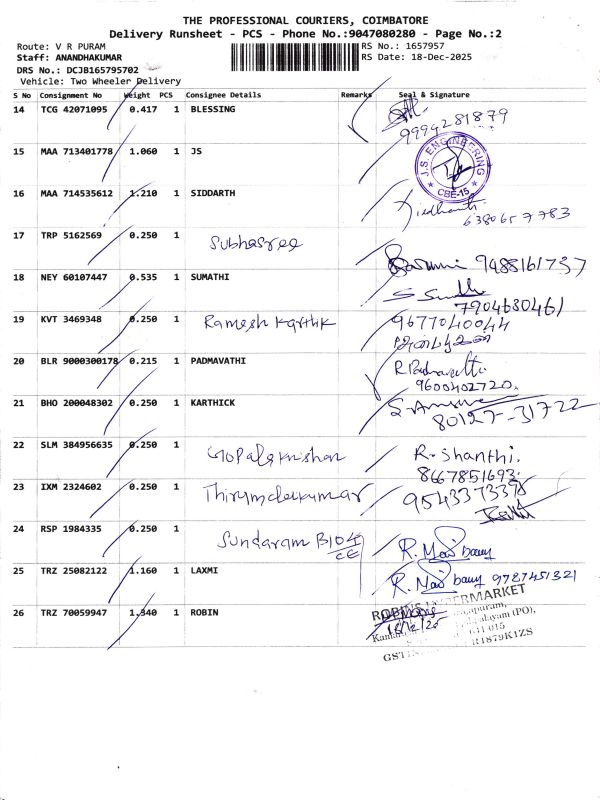 THE PROFESSIONAL COURIERS, COIMBATORE
Delivery Runsheet - PCS - Phone No.:9047080280 - Page No.:2
Route: V R PURAM RS No.: 1657957
Staff: ANANDHAKUMAR RS Date: 18-Dec-2025
DRS No.: DCJB165795702
Vehicle: Two Wheeler Delivery
S No Consignment No Weight PCS Consignee Details Remarks Seal & Signature
14 TCG 42071095 0.417 1 BLESSING
9994281879
15 MAA 713401778 1.060 1 JS
J.S. ENGINEERING
CBE-15
16 MAA 714535612 1.210 1 SIDDARTH
Siedhanth
6380657783
17 TRP 5162569 0.250 1 Subhasree
9488161737
18 NEY 60107447 0.535 1 SUMATHI
7904680461
19 KVT 3469348 0.250 1 Ramesh Karthik 9677040044
20 BLR 9000300178 0.215 1 PADMAVATHI R Padmavathi
9600402720.
21 BHO 200048302 0.250 1 KARTHICK
80127-31722
22 SLM 384956635 0.250 1 Gopalakrishnan R. Shanthi.
8667851693
23 IXM 2324602 0.250 1 9543373378
24 RSP 1984335 0.250 1 Sundaram B104
25 TRZ 25082122 1.160 1 LAXMI 9787451321
26 TRZ 70059947 1.340 1 ROBIN
18/12/25
641 015